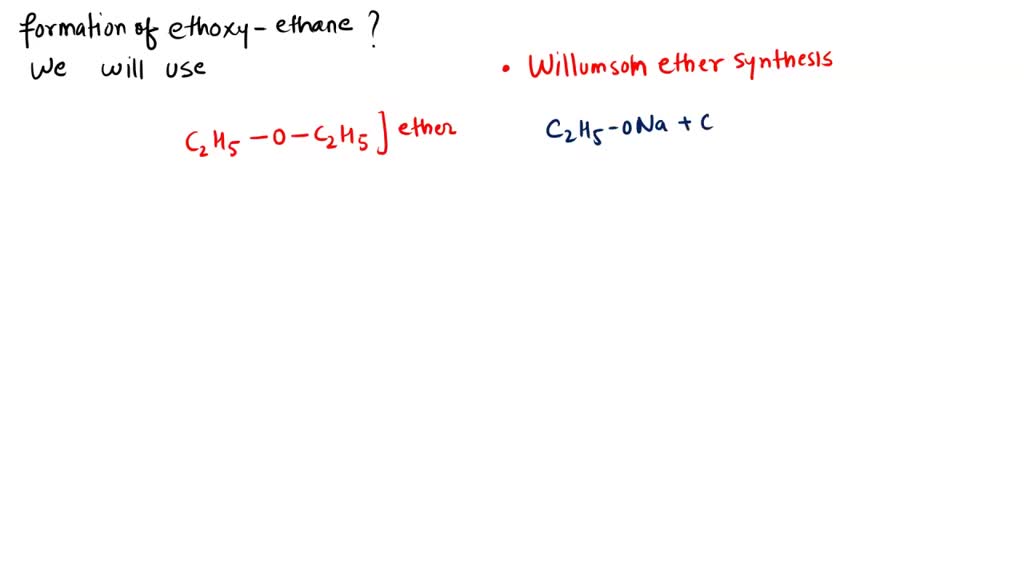 formation of ethoxy-ethane ?
We will use
• Willumsom ether synthesis
C₂H₅-O-C₂H₅] ether
C₂H₅-ONa + C